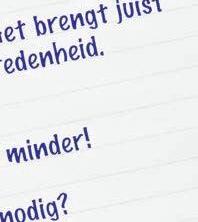 et brengt juist
edenheid.
minder!
nodig?